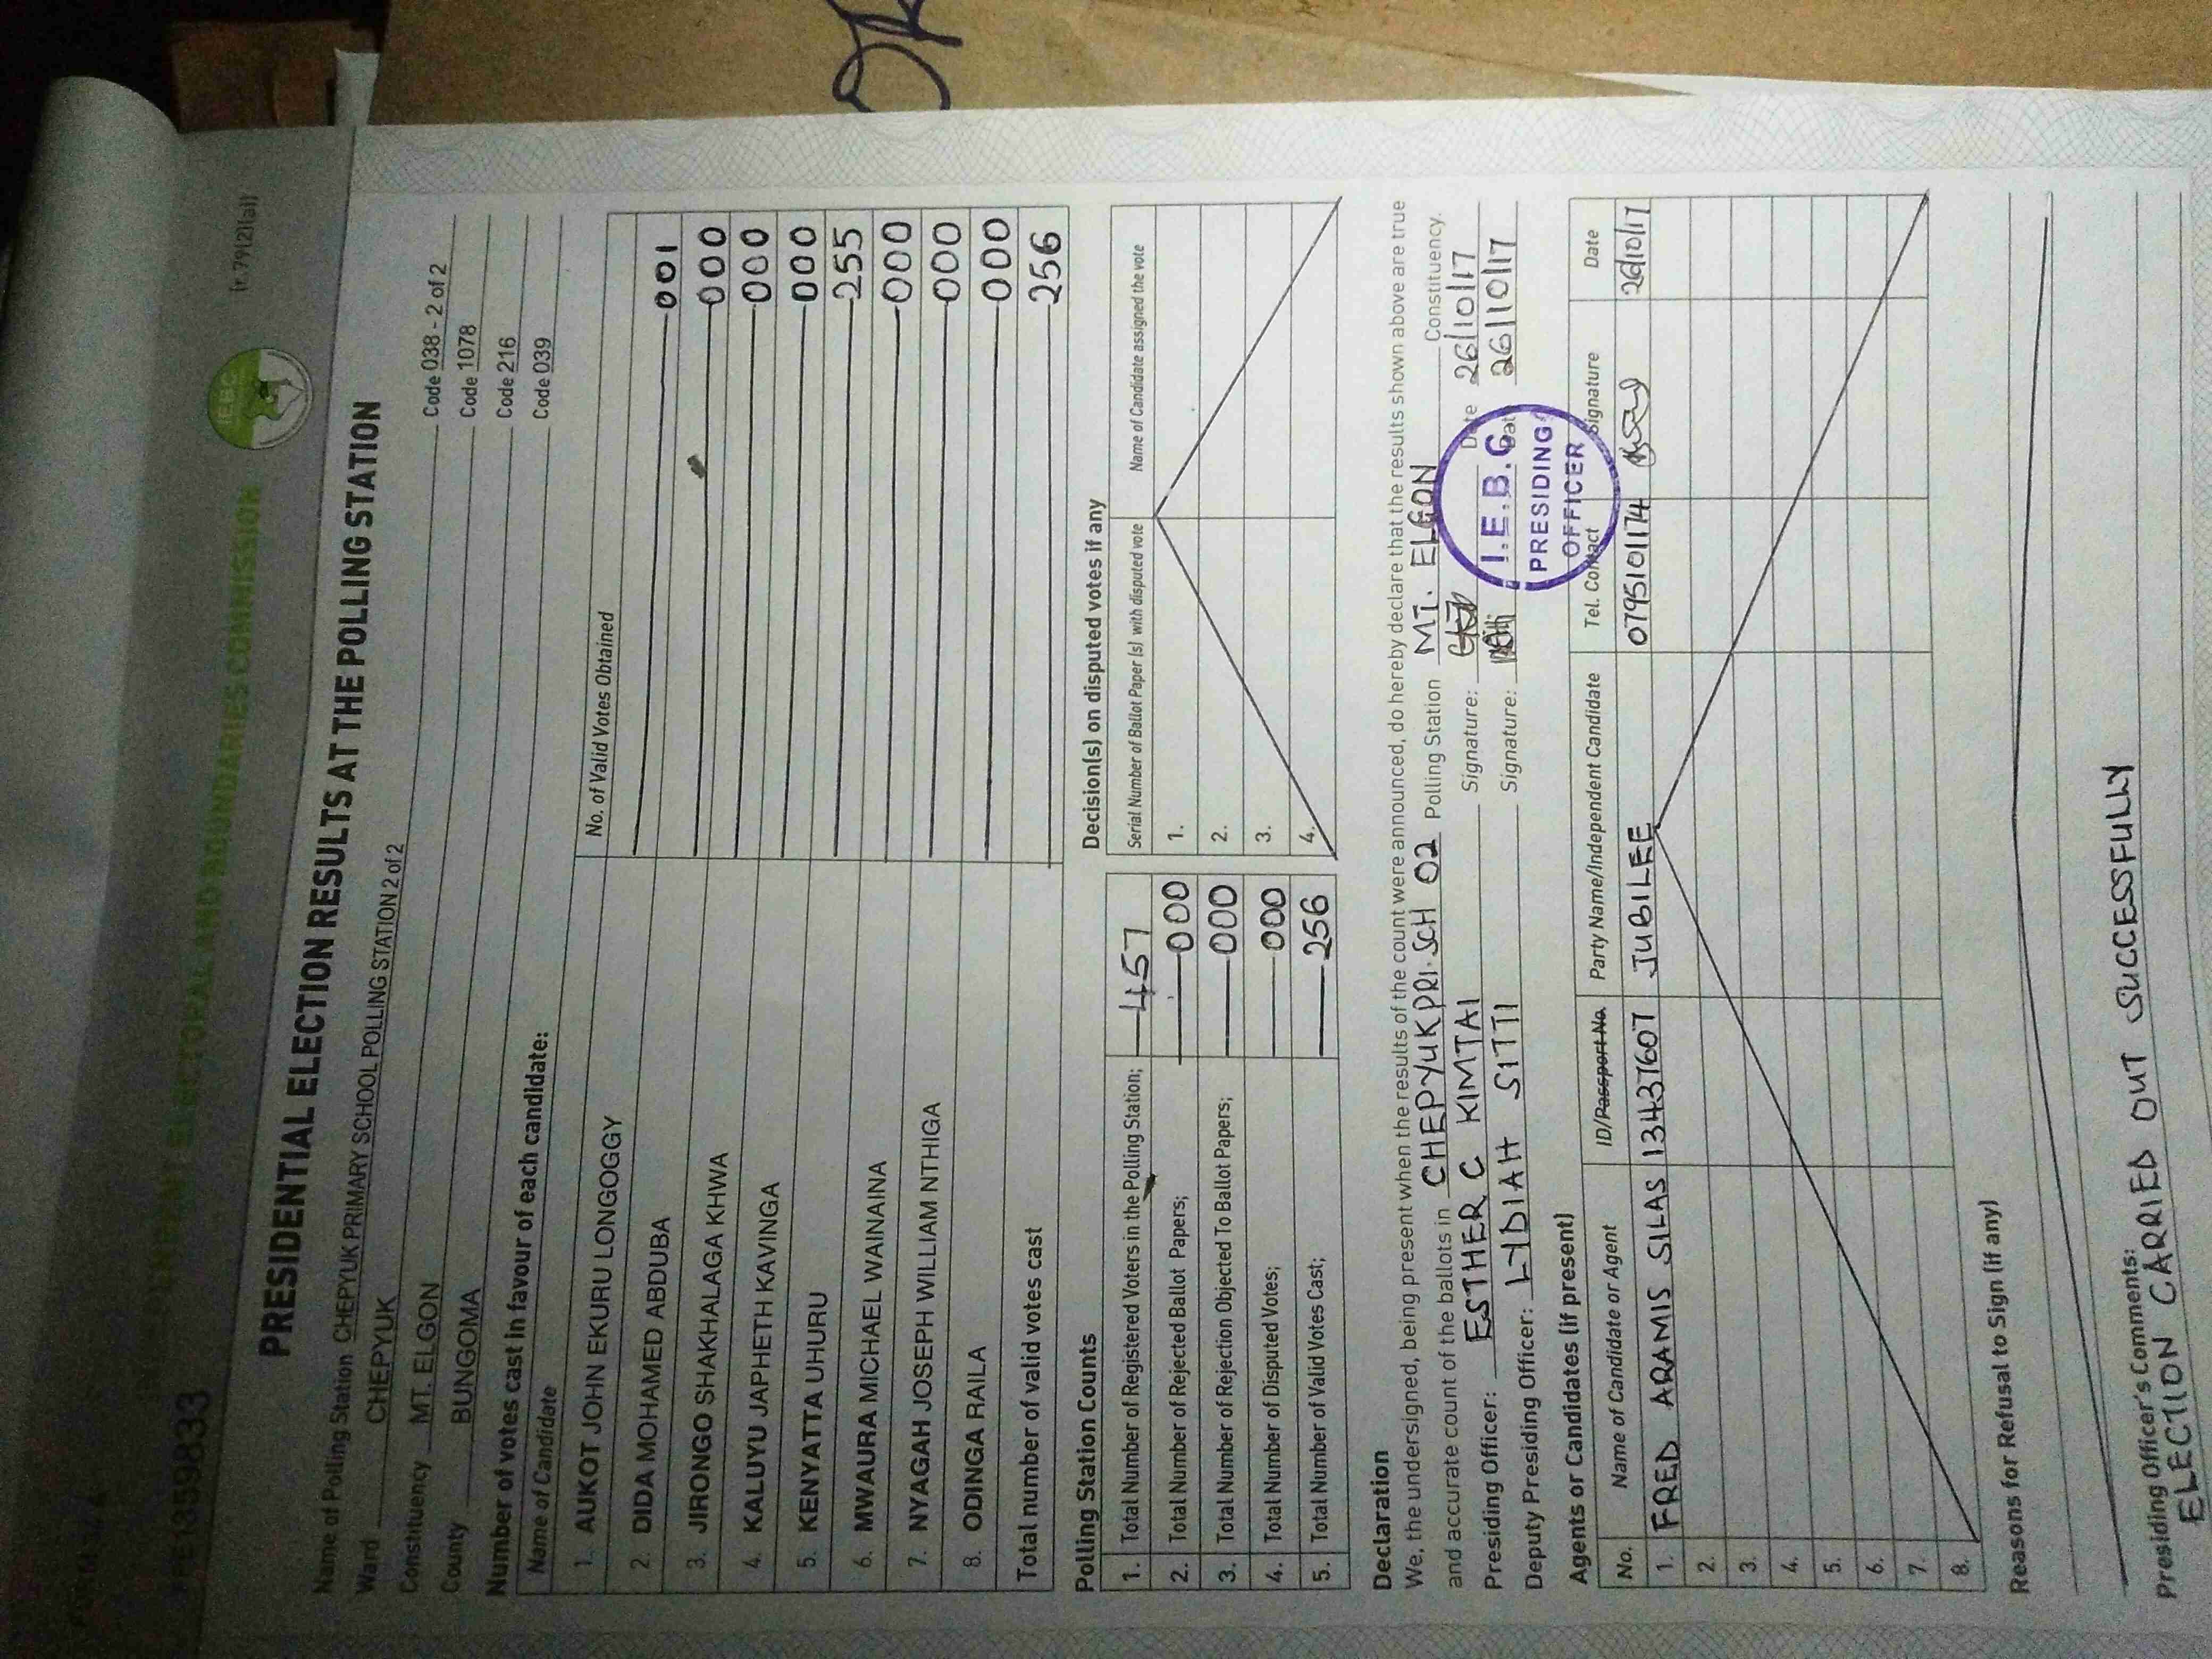 INDEPENDENT ELECTORAL AND BOUNDARIES COMMISSION
IEBC
(r.79(2)(a))
PRESIDENTIAL ELECTION RESULTS AT THE POLLING STATION
Name of Polling Station CHEPYUK PRIMARY SCHOOL POLLING STATION 2 of 2 Code 038 - 2 of 2
Ward CHEPYUK Code 1078
Constituency MT. ELGON Code 216
County BUNGOMA Code 039
Number of votes cast in favour of each candidate:
Name of Candidate No. of Valid Votes Obtained
1. AUKOT JOHN EKURU LONGOGGY 001
2. DIDA MOHAMED ABDUBA 000
3. JIRONGO SHAKHALAGA KHWA 000
4. KALUYU JAPHETH KAVINGA 000
5. KENYATTA UHURU 255
6. MWAURA MICHAEL WAINAINA 000
7. NYAGAH JOSEPH WILLIAM NTHIGA 000
8. ODINGA RAILA 000
Total number of valid votes cast 256
Polling Station Counts
1. Total Number of Registered Voters in the Polling Station; 457
2. Total Number of Rejected Ballot Papers; 000
3. Total Number of Rejection Objected To Ballot Papers; 000
4. Total Number of Disputed Votes; 000
5. Total Number of Valid Votes Cast; 256
Decision(s) on disputed votes if any
Serial Number of Ballot Paper (s) with disputed vote Name of Candidate assigned the vote
1.
2.
3.
4.
Declaration
We, the undersigned, being present when the results of the count were announced, do hereby declare that the results shown above are true
and accurate count of the ballots in CHEPYUK PRI. SCH 02 Polling Station MT. ELGON Constituency.
Presiding Officer: ESTHER C KIMTAI Signature: Date 26/10/17
Deputy Presiding Officer: LYDIAH SITTI Signature: Date 26/10/17
I.E.B.C
PRESIDING
OFFICER
Agents or Candidates (if present)
No. Name of Candidate or Agent ID/Passport No. Party Name/Independent Candidate Tel. Contact Signature Date
1. FRED ARAMIS SILAS 13437607 JUBILEE 0795101174 26/10/17
2.
3.
4.
5.
6.
7.
8.
Reasons for Refusal to Sign (if any)
Presiding Officer's Comments:
ELECTION CARRIED OUT SUCCESSFULLY